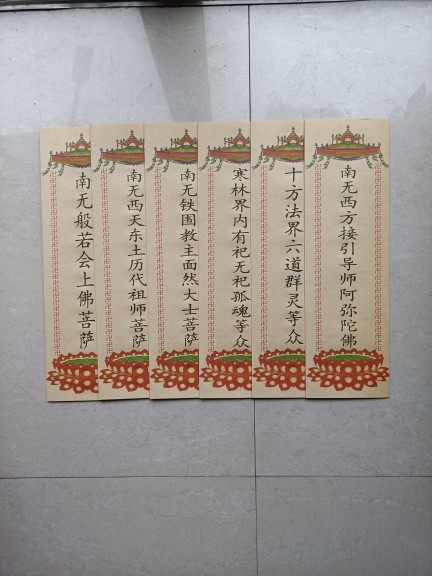 南无西方接引导师阿弥陀佛
十方法界六道群灵等众
寒林界内有祀无祀孤魂等众
南无铁围教主面然大士菩萨
南无西天东土历代祖师菩萨
南无般若会上佛菩萨